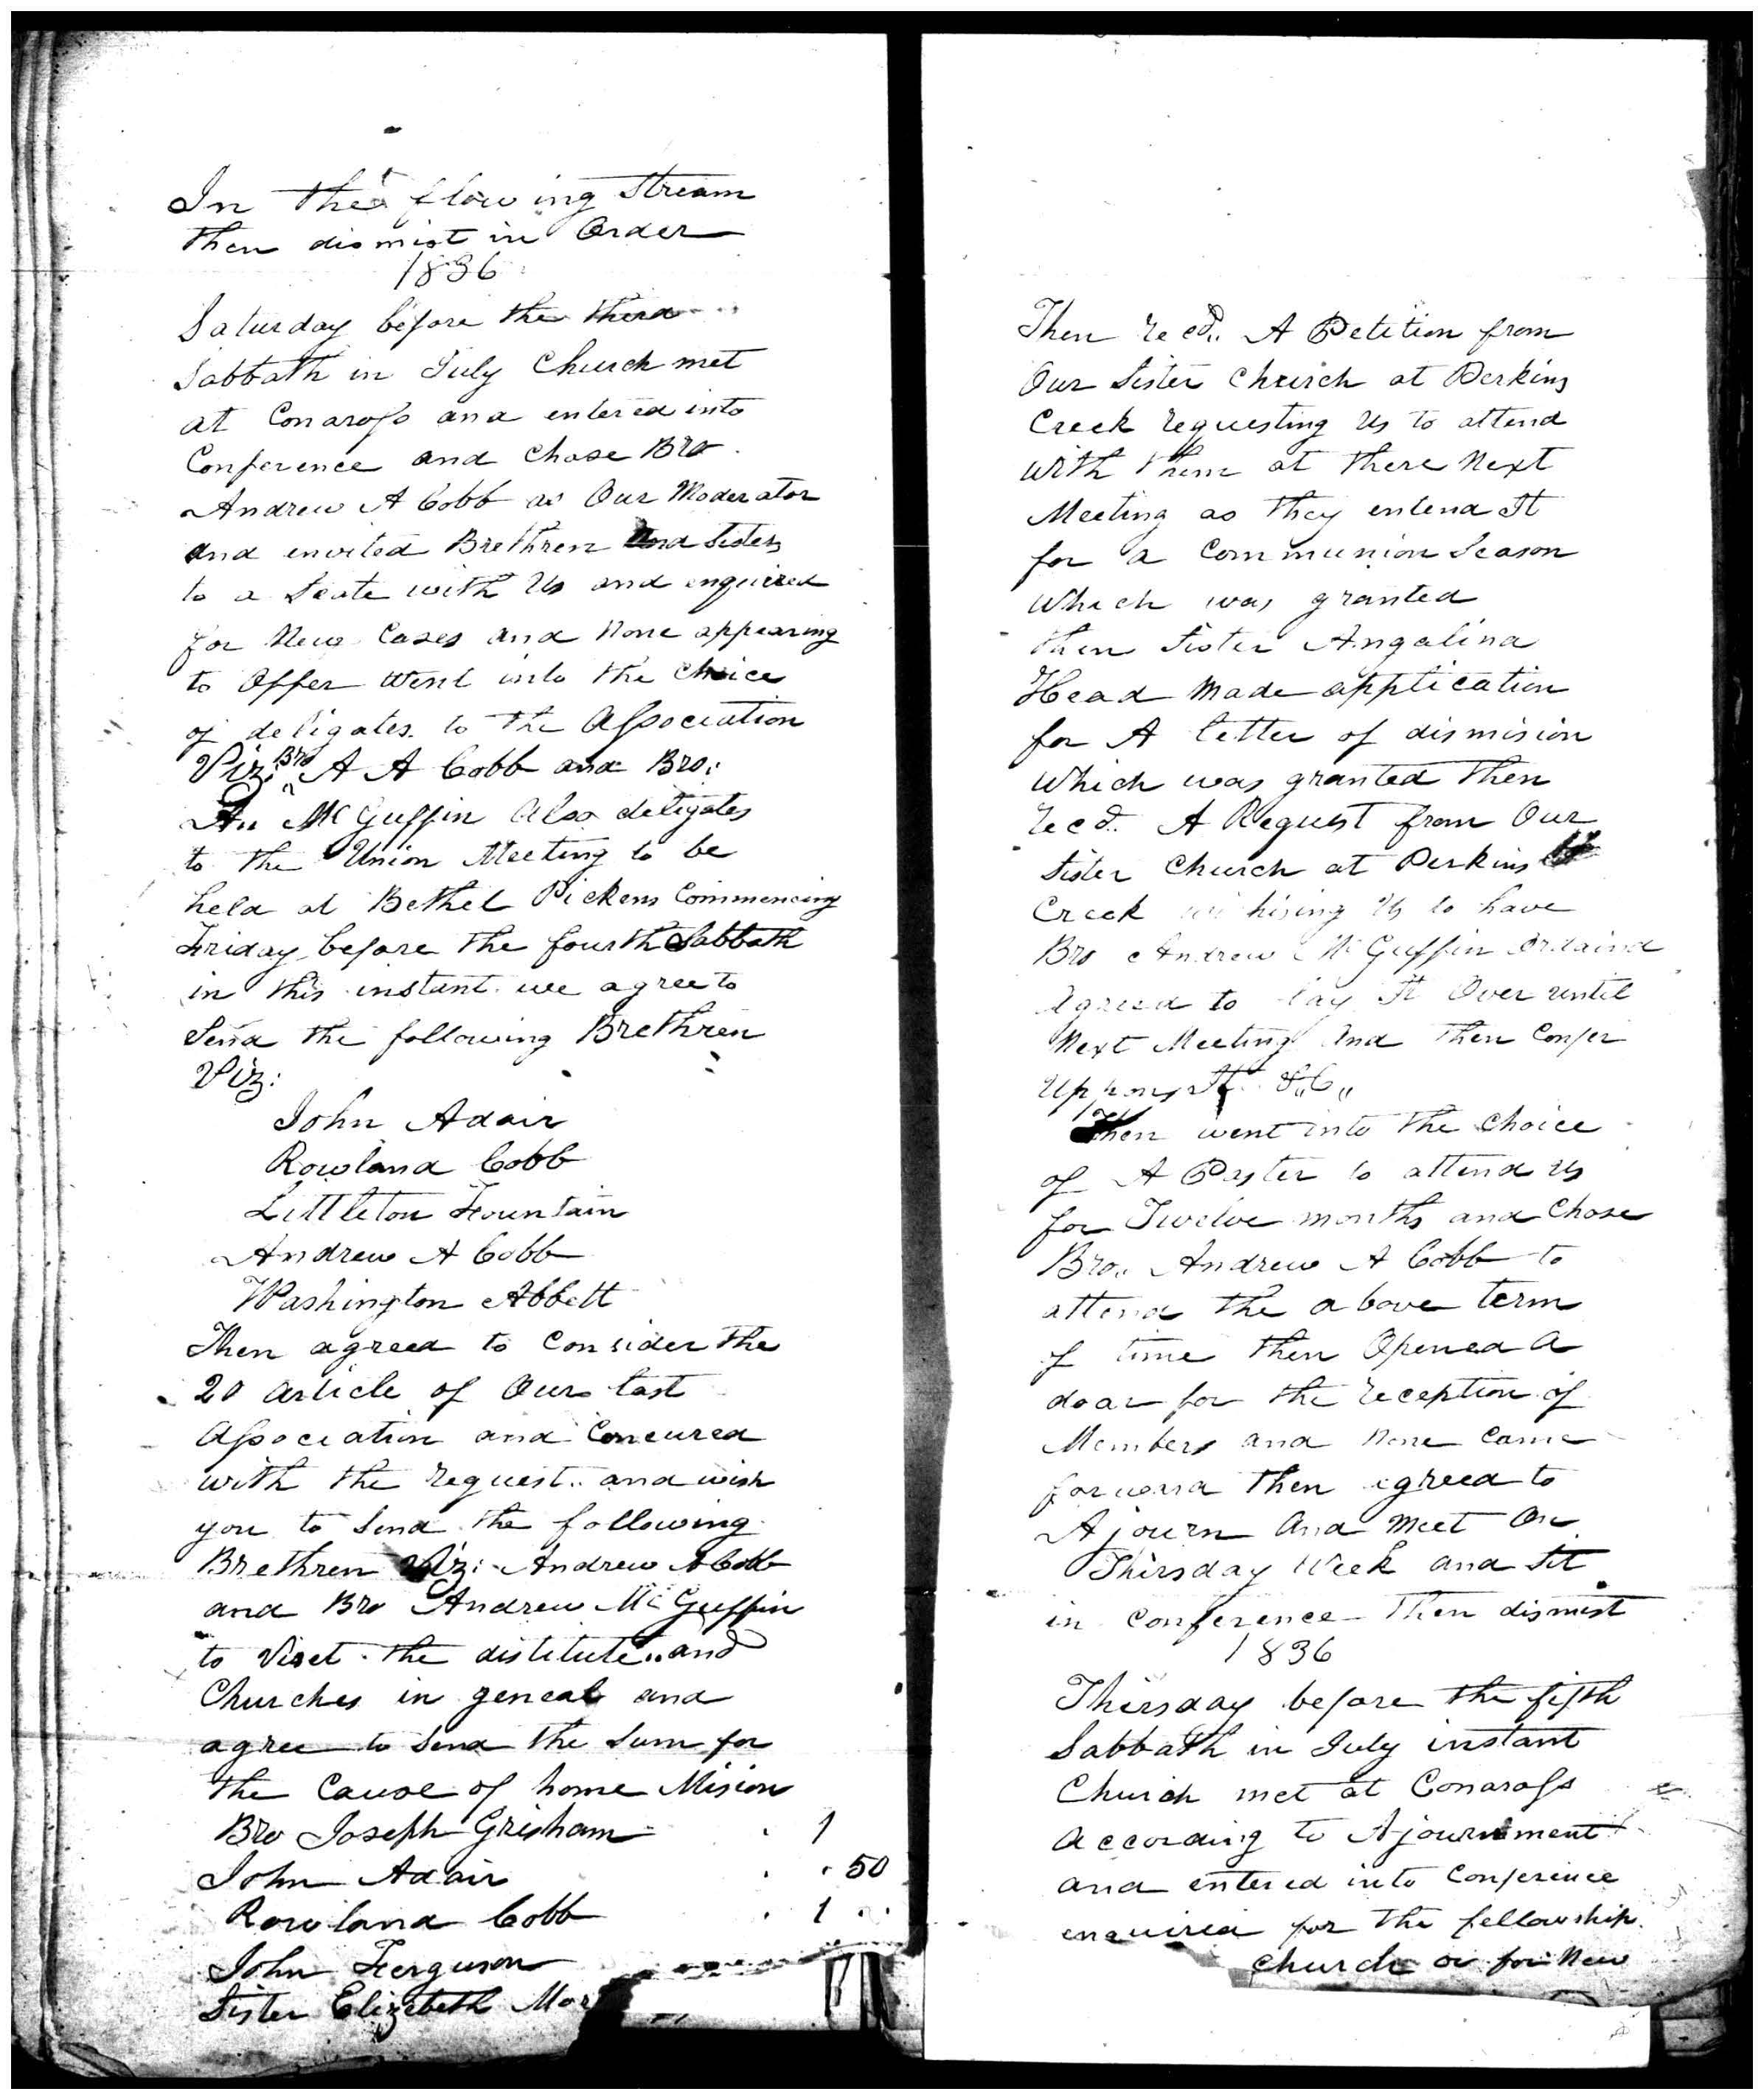 In the flowing Stream
then dismist in Order
1836
Saturday before the third
Sabbath in July Church met
at Conaross and entered into
Conference and Chose Bro
Andrew A Cobb as Our Moderator
and envited Brethren and Sisters
to a Seate with Us and enquired
for New Cases and None appearing
to Offer Went into the Choice
of deligates to the Association
Viz: Bro A A Cobb and Bro:
An McGuffin Also deligates
to the Union Meeting to be
held at Bethel Pickens Commencing
Friday before the fourth Sabbath
in this instant we agree to
Send the following Brethren
Viz:
John Adair
Rowland Cobb
Littleton Fountain
Andrew A Cobb
Washington Abbett
Then agreed to Consider the
20 Article of Our last
Association and Concured
with the request and wish
you to Send the following
Brethren Viz: Andrew A Cobb
and Bro Andrew McGuffin
to Viset the distitute and
Churches in geneal and
agree to Send the Sum for
the Cause of home Mision
Bro Joseph Grisham 1
John Adair 50
Rowland Cobb 1
John Ferguson
Sister Elizebeth
Then recd. A Petition from
Our Sister Church at Perkins
Creek requesting Us to attend
with them at there Next
Meeting as they entend It
for a Communion Season
Which was granted
then Sister Angalina
Head Made application
for A letter of dismision
Which was granted Then
recd. A Request from Our
Sister Church at Perkins
Creek wishing Us to have
Bro Andrew McGuffin Ordaind
Agreed to lay It Over until
Next Meeting And Then Confer
Uppon It &C
Then went into the Choice
of A Paster to attend us
for Twelve months and Chose
Bro. Andrew A Cobb to
attend the above term
of time then Opened A
doar for the reception of
Members and None Came
forward Then agreed to
Ajourn And Meet On
Thirsday Week and Sit
in Conference Then dismist
1836
Thirsday before the fifth
Sabbath in July instant
Church met at Conaross
According to Ajournment
and entered into Conference
enquired for the fellowship
Church or for New